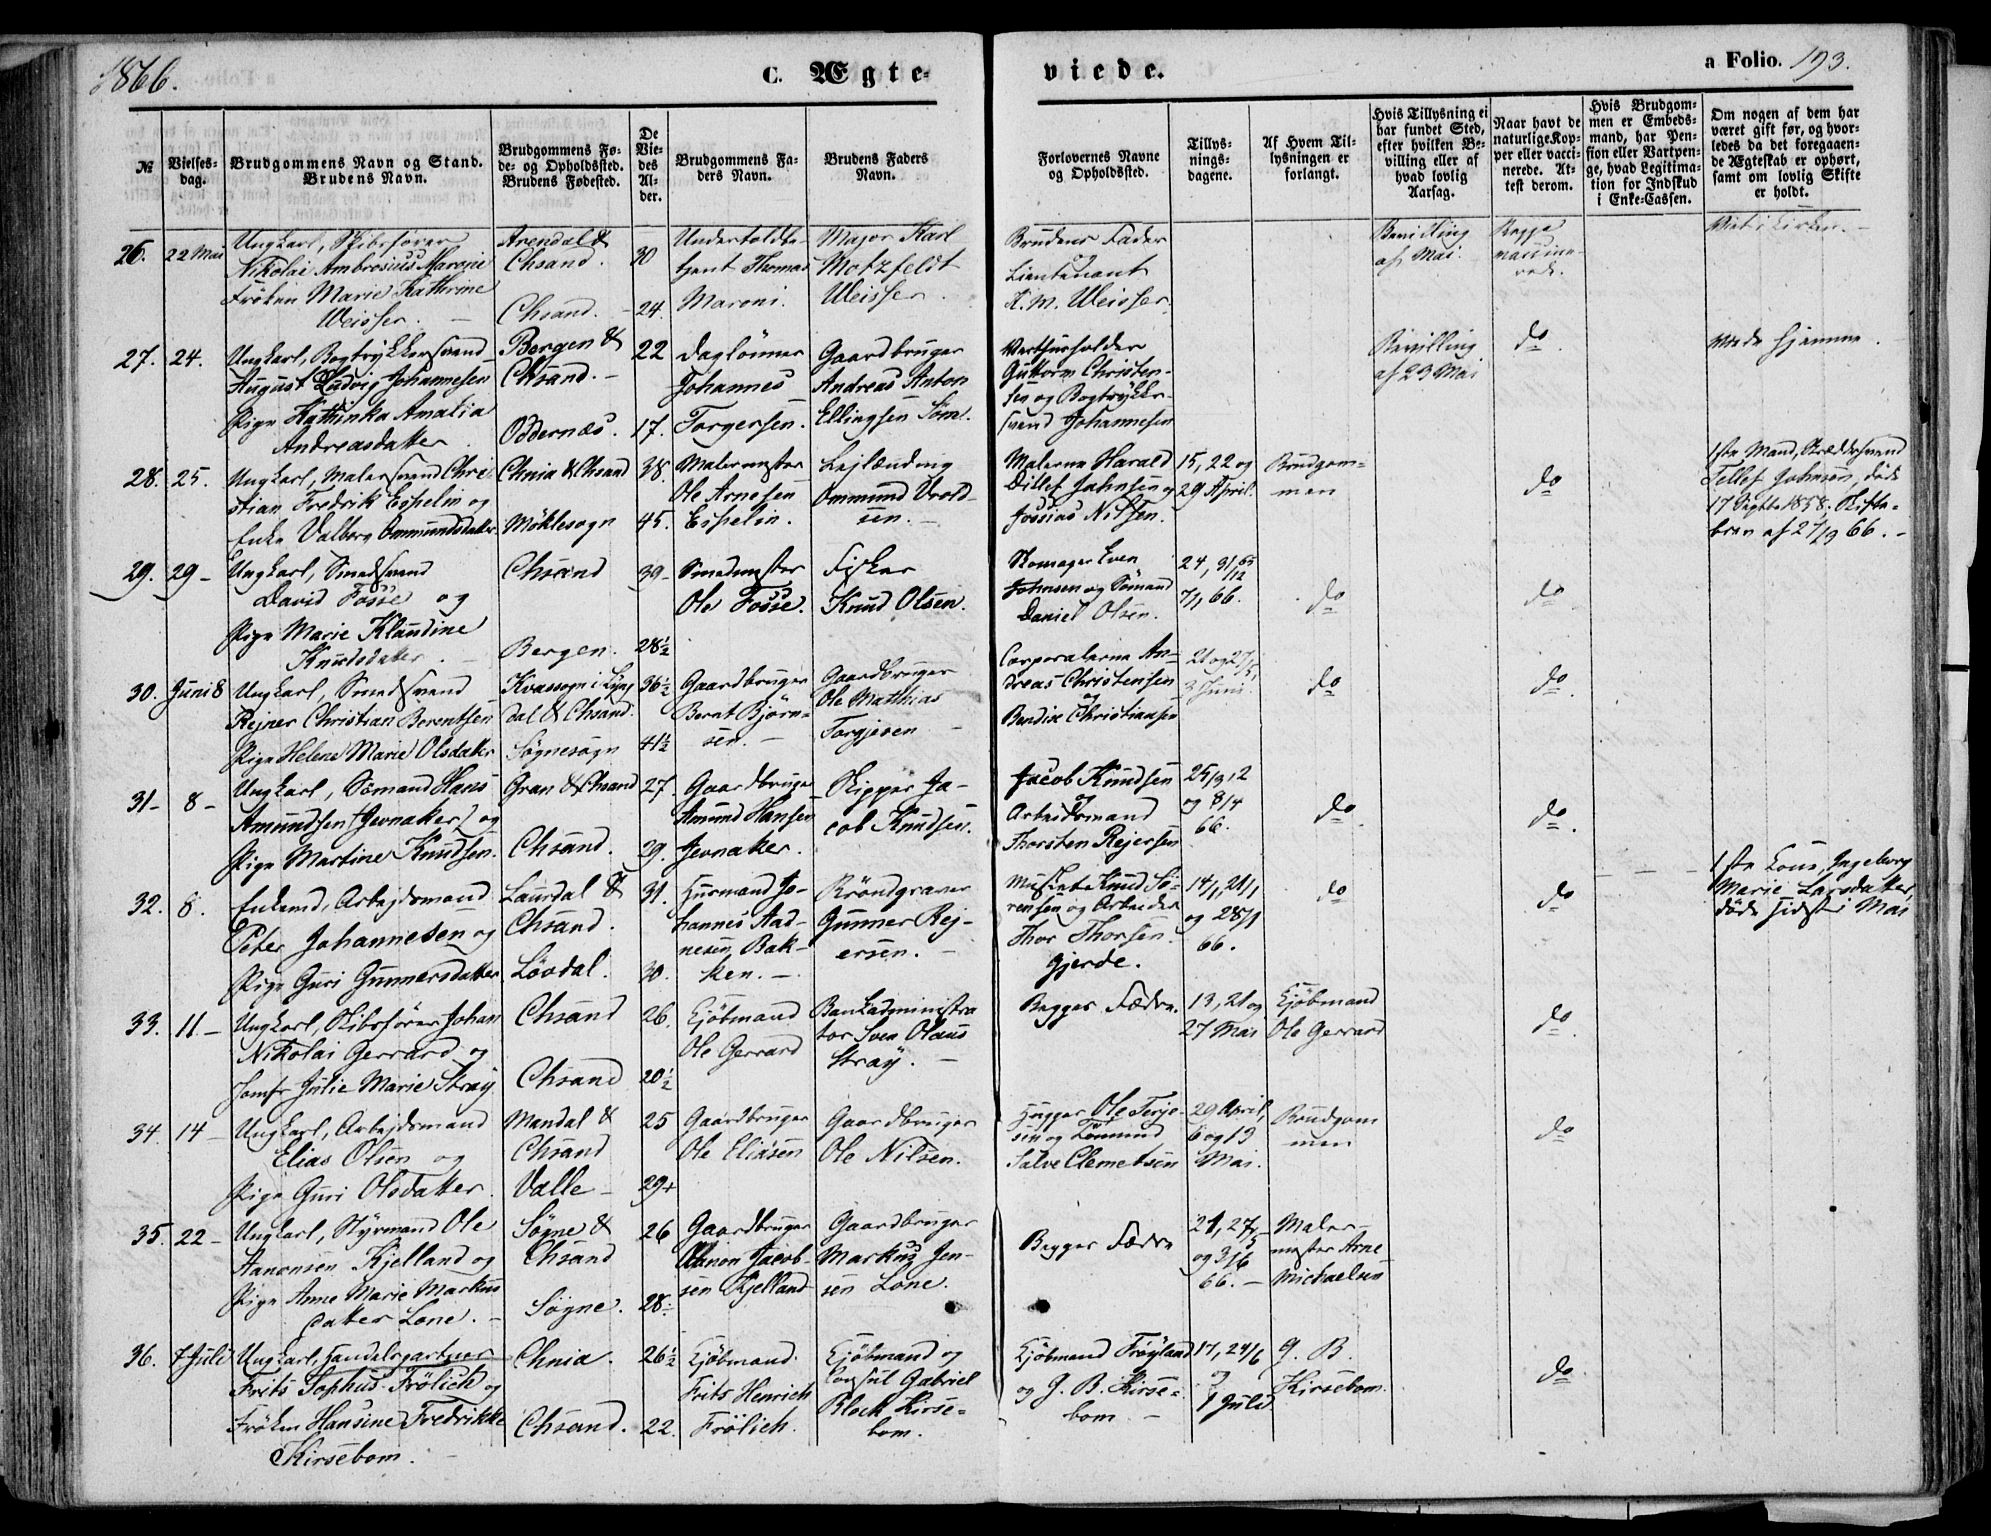 1866.
C. Ægte-
viede.
a Folio. 193.
№
Vielses-
dag.
Brudgommens Navn og Stand.
Brudens Navn.
Brudgommens Fø-
de- og Opholdssted.
Brudens Fødested.
De
Vie-
des
Al-
der.
Brudgommens Fa-
ders Navn.
Brudens Faders
Navn.
Forlovernes Navne
og Opholdssted.
Tillys-
nings-
dagene.
Af Hvem Til-
lysningen er
forlangt.
Hvis Tillysning ei
har fundet Sted,
efter hvilken Be-
villing eller af
hvad lovlig
Aarsag.
Naar havt de
naturlige Kop-
per eller vacci-
nerede. At-
test derom.
Hvis Brudgom-
men er Embeds-
mand, har Pen-
sion eller Vartpen-
ge, hvad Legitima-
tion for Indskud
i Enke-Cassen.
Om nogen af dem har
været gift før, og hvor-
ledes da det foregaaen-
de Ægteskab er ophørt,
samt om lovlig Skifte
er holdt.
26. 22 Mai
Ungkarl, Skibsfører
Nikolai Ambrosius Maroni
Frøken Marie Kathrine
Weisser.
Arendal &
Chsand.
Chsand.
30
24.
Undertoldbe-
tjent Thomas
Maroni.
Major Karl
Motzfeldt
Weisser.
Brudens Fader
og
Lieutenant
K. M. Weisser.
Bevilling
af Mai.
Begge
vaccine-
rede.
Viet i Kirken.
27. 24.
Ungkarl, Bogtrykkersvend
August Ludvig Johannesen
Pige Kathinka Amalia
Andreasdatter.
Bergen &
Chsand.
Oddernæs.
22
17.
Daglønner
Johannes
Torgersen.
Gaardbruger
Andreas Anton
Ellingsen Søm.
Værtshusholder
Guttorm Christen-
sen og Bogtrykker-
svend Johannesen
Bevilling
af 23 Mai
do.
Viede hjemme.
28. 25.
Ungkarl, Malersvend Chri-
stian Fredrik Espelin og
Enke Valborg Ommundsdatter.
Chnia & Chsand
Møklesogn
38.
45.
Malermester
Ole Arnesen
Espelin.
Lejlænding
Ommund Vrold-
sen.
Malerne Harald
Ditlef Johnsen og
Jossias Nilsen.
15, 22 og
29 April.
Brudgom-
men
do
1ste Mand, Skræddersvend
Tellef Johnsen, døde
17 Septbr 1858; Skifte-
brev af 27/9 66.
29. 29
Ungkarl, Smedsvend
David Fosse og
Pige Marie Klaudine
Knudsdatter.
Chsand
Bergen.
39
28½
Smedmester
Ole Fosse.
Fisker
Knud Olsen.
Skomager Even
Johnsen og Sømand
Daniel Olsen.
24, 31/12 65
7/1 66.
do
do
30. Juni 8
Ungkarl, Smedsvend
Rejner Christian Berentsen
Pige Helene Marie Olsdatter
Kvassogn i Lyng
dal & Chsand.
Søgnesogn
36½
41½
Gaardbruger
Bernt Bjørn-
sen.
Gaardbruger
Ole Matthias
Torgjesen
Corporalerne An-
dreas Christensen
og
Bendix Christiansen
21 og 27/5,
3 Juni.
do
do.
31 8
Ungkarl, Sømand Hans
Amundsen (Jevnaker) og
Pige Martine Knudsen.
Gran & Chsand
Chsand.
27.
29.
Gaardbruger
Amund Hansen
Jevnaker.
Skipper Ja-
cob Knudsen.
Jacob Knudsen
og
Arbeidsmand
Thorsten Rejersen
25/3, 2
og 8/4
66.
do
do.
32. 8.
Enkemd, Arbejdsmand
Peter Johannesen og
Pige Guri Gunnersdatter
Laurdal &
Chsand.
Løvdal.
31.
30.
Husmand Jo-
hannes Aad-
nesen Bak-
ken.
Brøndgraver
Gunner Rej-
ersen.
Musketer Knud Sø-
rensen og Arbeider
Thor Thorsen
Gjerde.
14/1, 21/1
og 28/1
66.
do
do
1ste Kone, Ingeborg
Marie Larsdatter,
døde sidst i Mai
33. 11
Ungkarl, Skibsfører Johan
Nikolai Gerrard og
Jomfr Julie Marie Stray
Chsand
Chsand
26.
20½
Kjøbmand
Ole Gerrard
Bankadministra
tor Sven Olaus
Stray.
Begges Fædre.
13, 21 og
27 Mai
Kjøbmand
Ole Gerrard
do.
34. 14
Ungkarl, Arbejdsmand
Elias Olsen og
Pige Guri Olsdatter.
Mandal &
Chsand
Valle
25
29+
Gaardbruger
Ole Eliasen
Gaardbruger
Ole Nilsen.
Hugger Ole Terje-
sen og Tømmermd
Salve Clemetsen
29 April,
6 og 13
Mai.
Brudgom
men
do
35. 22
Ungkarl, Styrmand Ole
Aanonsen Kjelland og
Pige Anne Marie Markus
datter Lone.
Søgne &
Chsand
Søgne.
26
28.
Gaardbruger
Aanon Jacob-
sen Kjelland
Gaardbruger
Markus Jen-
sen Lone.
Begges Fædre
21, 27/5
og 3/6
66.
Maler-
mester Arne
Michaelsen
36. 7 Juli
Ungkarl, Handelsgartner
Frits Sophus Frölich og
Frøken Hansine Fredrikke
Kirsebom.
Chnia.
Chsand.
26½
22.
Kjøbmand
Frits Henrich
Frölich.
Kjøbmand og
Consul Gabriel
Block Kirse-
bom.
Kjøbmand Frøyland
og G. B. Kirse-
bom
17, 24/6
og
1 Juli
G. B.
Kirsebom.
do.